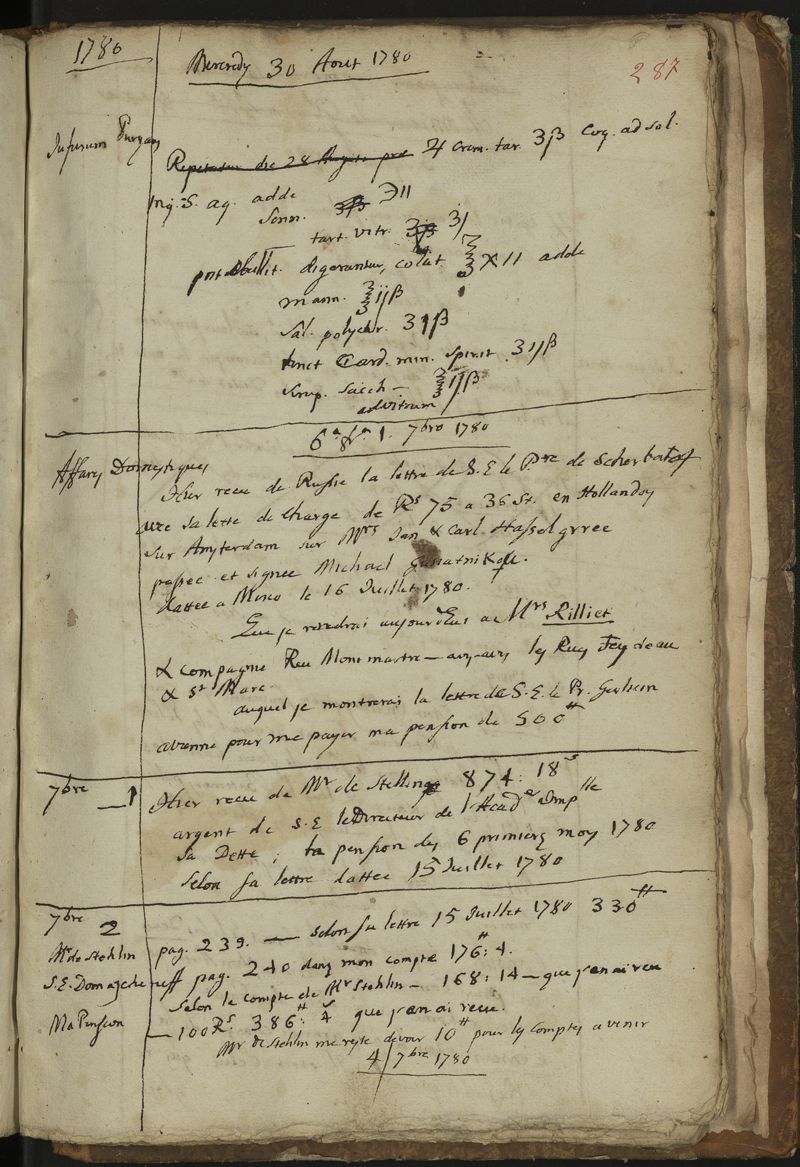 1780
Mercredy 30 Aout 1780
287
Infusum Purgans
Repetatur die 28 Augusti pro ♃ Crem. tar. ʒβ Coq. ad sol.
in q. S. aq. adde
Senn. ℈11
tart. vitr. ʒ1
post ebullit. digerantur, colat. ℥ X11 adde
mann. ℥ijβ
Sal. polychr. ʒ1β
tinct Card. min. Spirit. ʒ1jβ
Syrup. Sacch — ℥1jβ
ad vitrum
6ª 8ª 1. 7bro 1780
Affares Domestiques
Hier receu de Russie la lettre de S. E le Pre de Scherbatof
avec sa lettre de Charge de Rs 75 a 36 St. en Hollandoy
sur Amsterdam sur Mrs Jan & Carl Hasselgreee
passee et signee Michael Gusiatnikof.
dattee a Mosco le 16 Juillet 1780.
Que je rendrai aujourd'hui a Mrs Rilliet
& compagnie Rue Monmartre — avy-avy les Rues Feydeau
& St Marc
auquel je montrerai la lettre de S. E. le Pr.
avenne pour me payer ma pension de 500 ₶
7bre — 1
Hier receu de Mr de Stelling 874: 18 s
argent de S. E le Directeur de l'Acade Imp lle
Sa Dette; ta pension des 6 primierz moy 1780
Selon sa lettre dattee 15 Juillet 1780
7bre 2
Mr de Stehlin pag. 239. — Selon sa lettre 15 Juillet 1780 330 ₶
S. E. Domascheneff pag. 240 danz mon compte 176 ₶: 4.
Selon le compte de Mr Stehlin — 168: 14 — que j'en ai receu
Ma Pension — 100 Rs. 386 ₶: 4 s que j'en ai receu.
Mr de Stehlin me reste devoir 10 ₶ pour les comptes a venir
4 / 7bre 1780